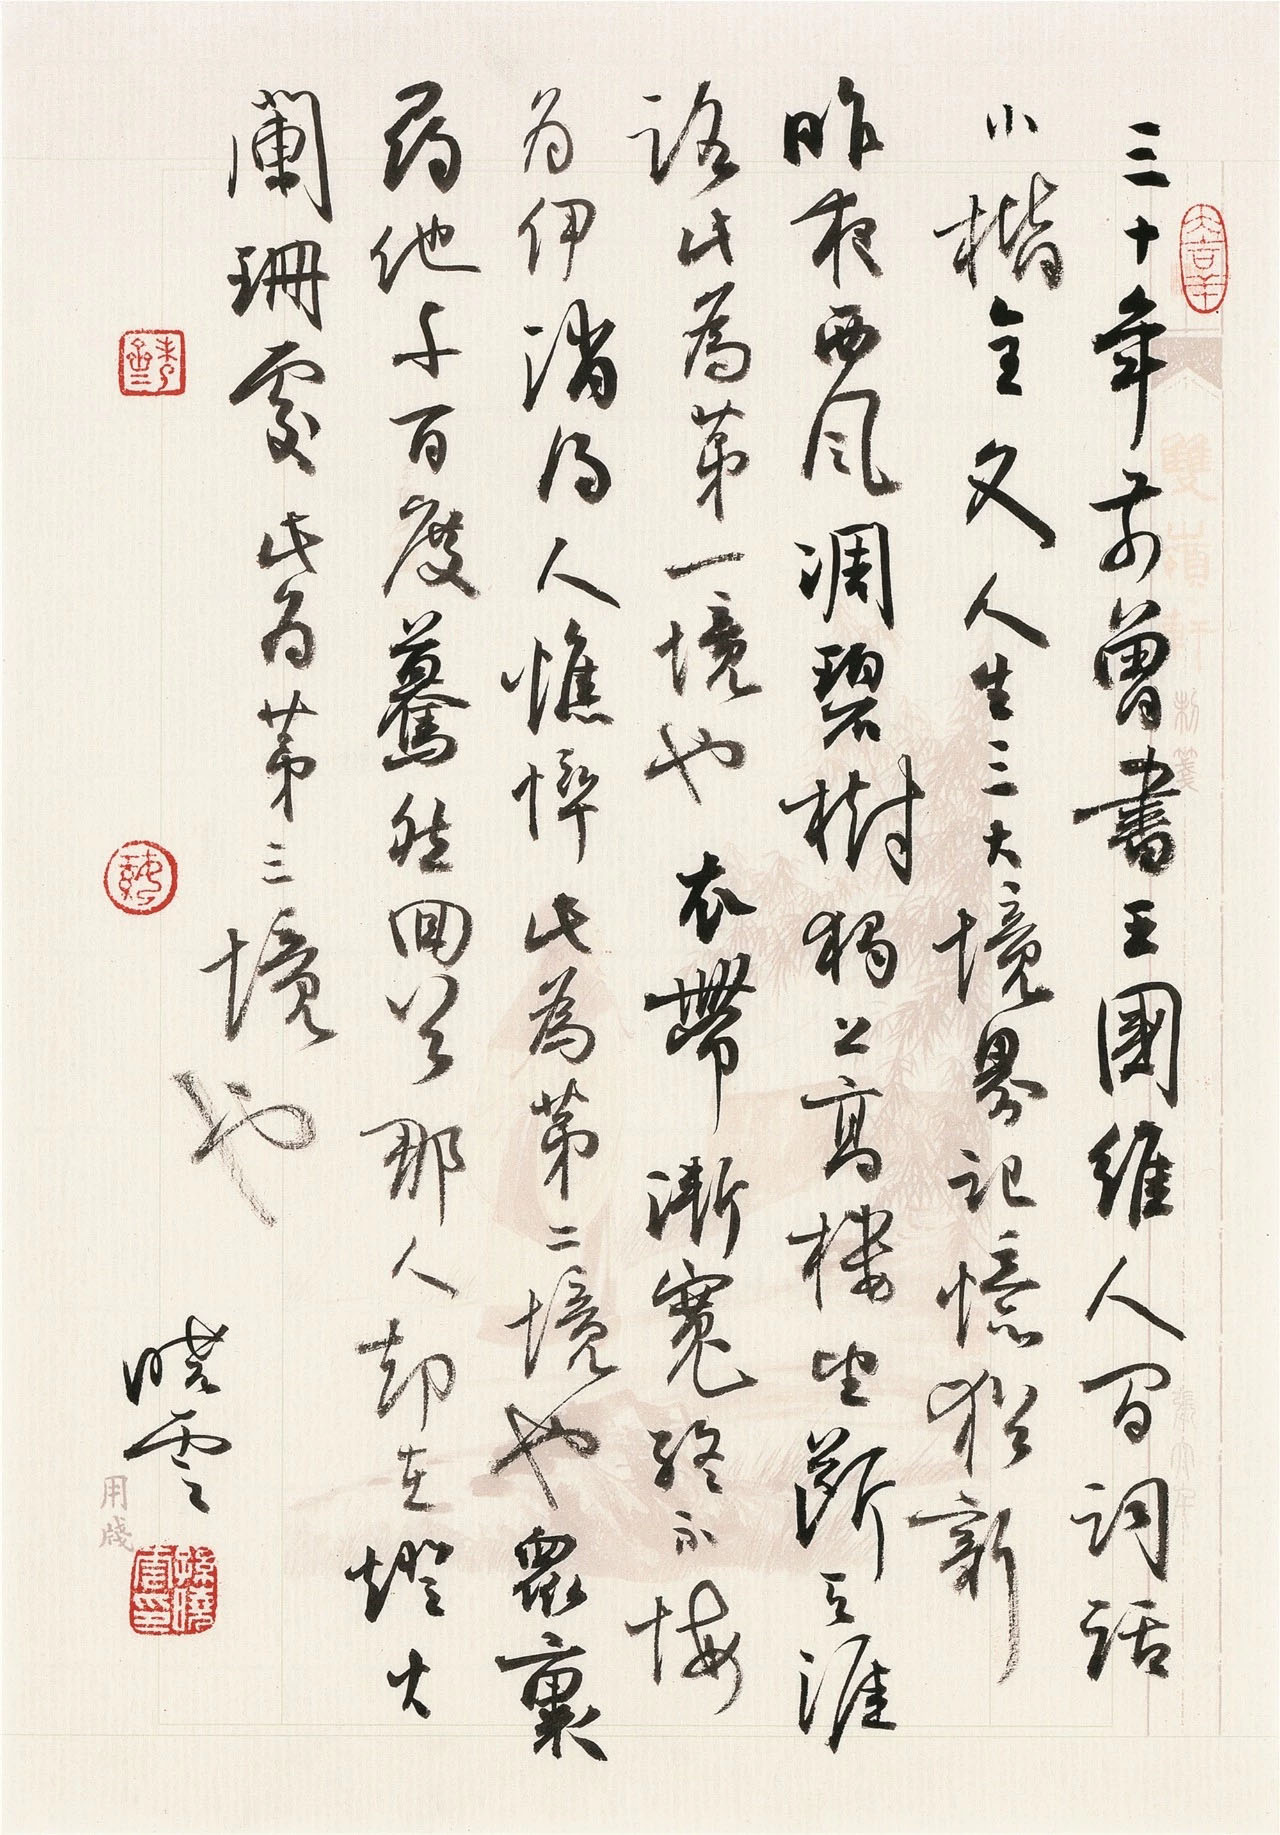 三十年前曾書王國維人間詞話
小楷全文人生三大境界記憶猶新
昨夜西風凋碧樹獨上高樓望斷天涯
路此為第一境也衣帶漸寬終不悔
為伊消得人憔悴此為第二境也眾裏
尋他千百度驀然回首那人却在燈火
闌珊處此為第三境也
曉雲
孫曉雲印
雙嶺軒制箋
用箋